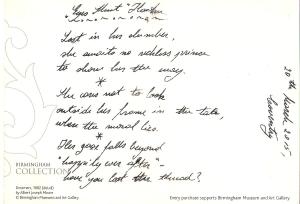 "Eyes Shut"
Lost in her slumber,
she awaits no reckless prince
to show her the way.
*
She cares not to look
outside her frame in the Tate
when the moral lies.
*
Her gaze falls beyond
"happily ever after" -
have you lost the thread?
20th March 2015,
Coventry
BIRMINGHAM
COLLECTION
Dreamers, 1882 (detail)
by Albert Joseph Moore
© Birmingham Museums and Art Gallery
Every purchase supports Birmingham Museum and Art Gallery.